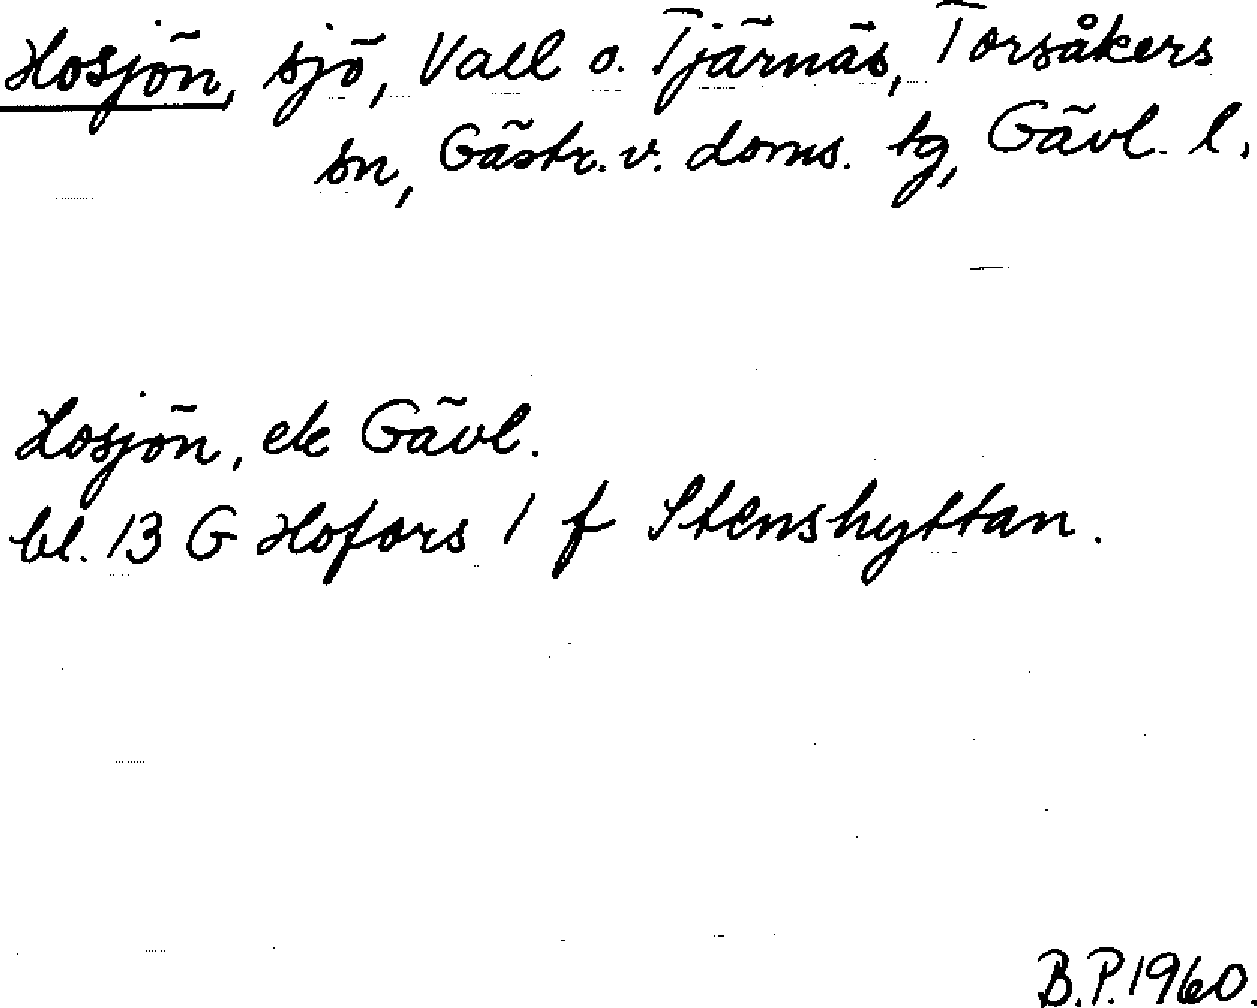 Hosjön, sjö, Vall o. Tjärnäs, Torsåkers
sn, Gästr. v. doms. tg, Gävl. l.
Hosjön, ek Gävl.
bl. 13 G Hofors 1 f Stenshyttan.
B.P. 1960.